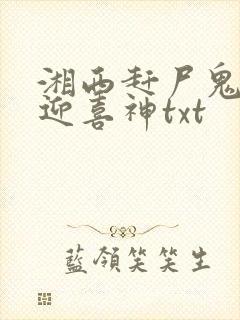 湘西赶尸鬼
迎喜神txt
藍領笑笑生